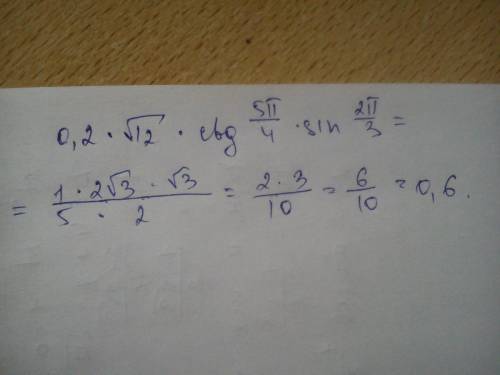 0,2 · √12 · ctg 5π/4 · sin 2π/3 =
= (1 · 2√3 · √3)/(5 · 2) = (2 · 3)/10 = 6/10 = 0,6.